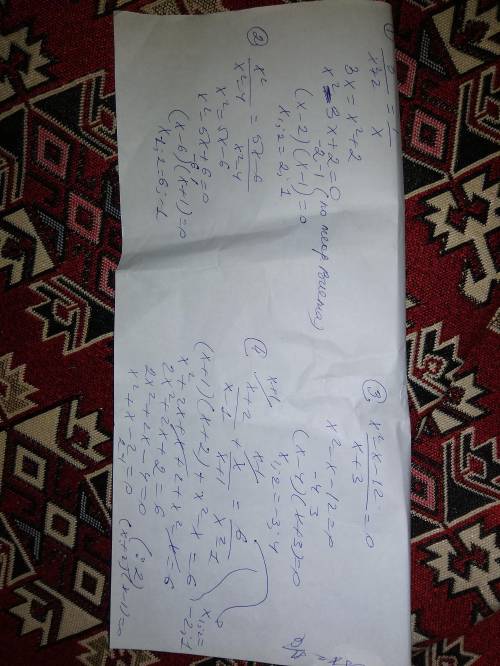 ① 3/(x²+2) = 1/x
3x = x²+2
x² - 3x + 2 = 0
-2, -1 (по теор Виета)
(x-2)(x-1) = 0
x₁,₂ = 2; 1
② x²/(x²-4) = (5x-6)/(x²-4)
x² = 5x-6
x² - 5x + 6 = 0
-6; 1
(x-6)(x+1) = 0
x₁,₂ = 6; -1
③ (x²-x-12)/(x+3) = 0
x² - x - 12 = 0
-4 3
(x-4)(x+3) = 0
x₁,₂ = -3; 4
(x+2)/(x-1) + x/(x+1) = 6/(x²-1)
(x+1)(x+2) + x² - x = 6
x² + 2x + x + 2 + x² - x = 6
2x² + 2x + 2 = 6
2x² + 2x - 4 = 0 (:2)
x² + x - 2 = 0 (x+2)(x-1) = 0
x₁,₂ = -2; 1